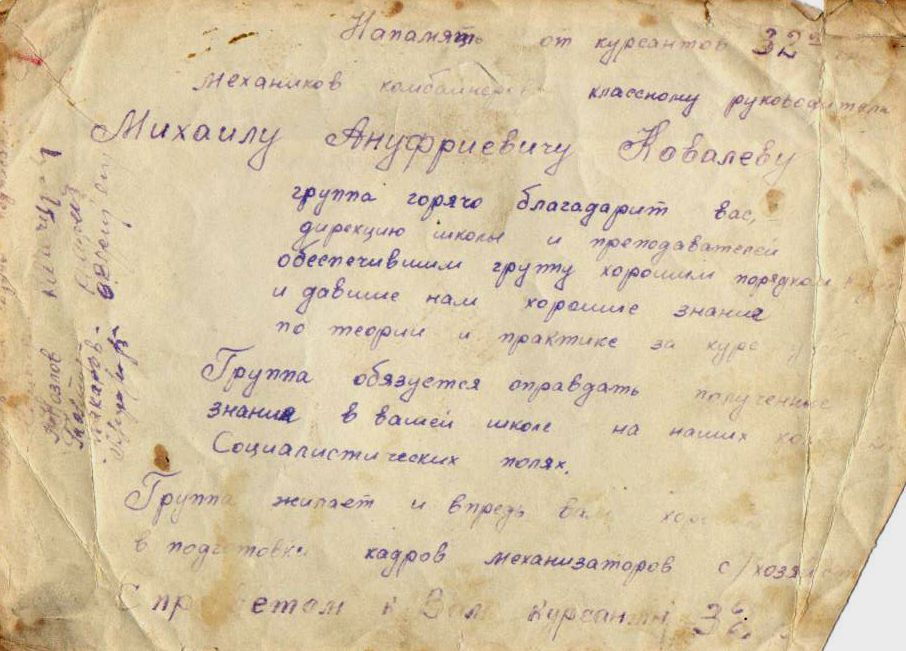 Напамять от курсантов 32
механиков классному руководителю
Михаилу Ануфриевичу Ковалеву
группа горячо благадарит вас,
дирекцию школы и преподавателей
обеспечившим группу хорошим порядком
и давшие нам хорошие знание
по теории и практике за курс
Группа обязуется оправдать полученные
знание в вашей школе на наших
Социалистических полях.
Группа жилает и впредь вам
в подготовки кадров механизаторов с/хозяйст
С приветом к Вам курсанты 32
Козлов
Макаров